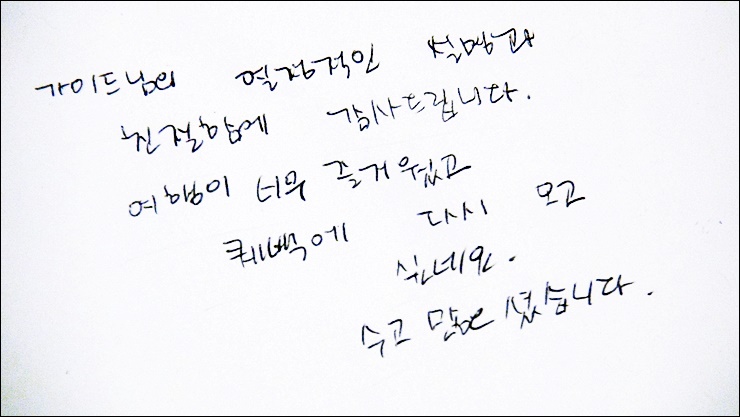 가이드님의 열정적인 설명과
친절함에 감사드립니다.
여행이 너무 즐거웠고
퀘백에 다시 오고
싶네요.
수고 많으셨습니다.